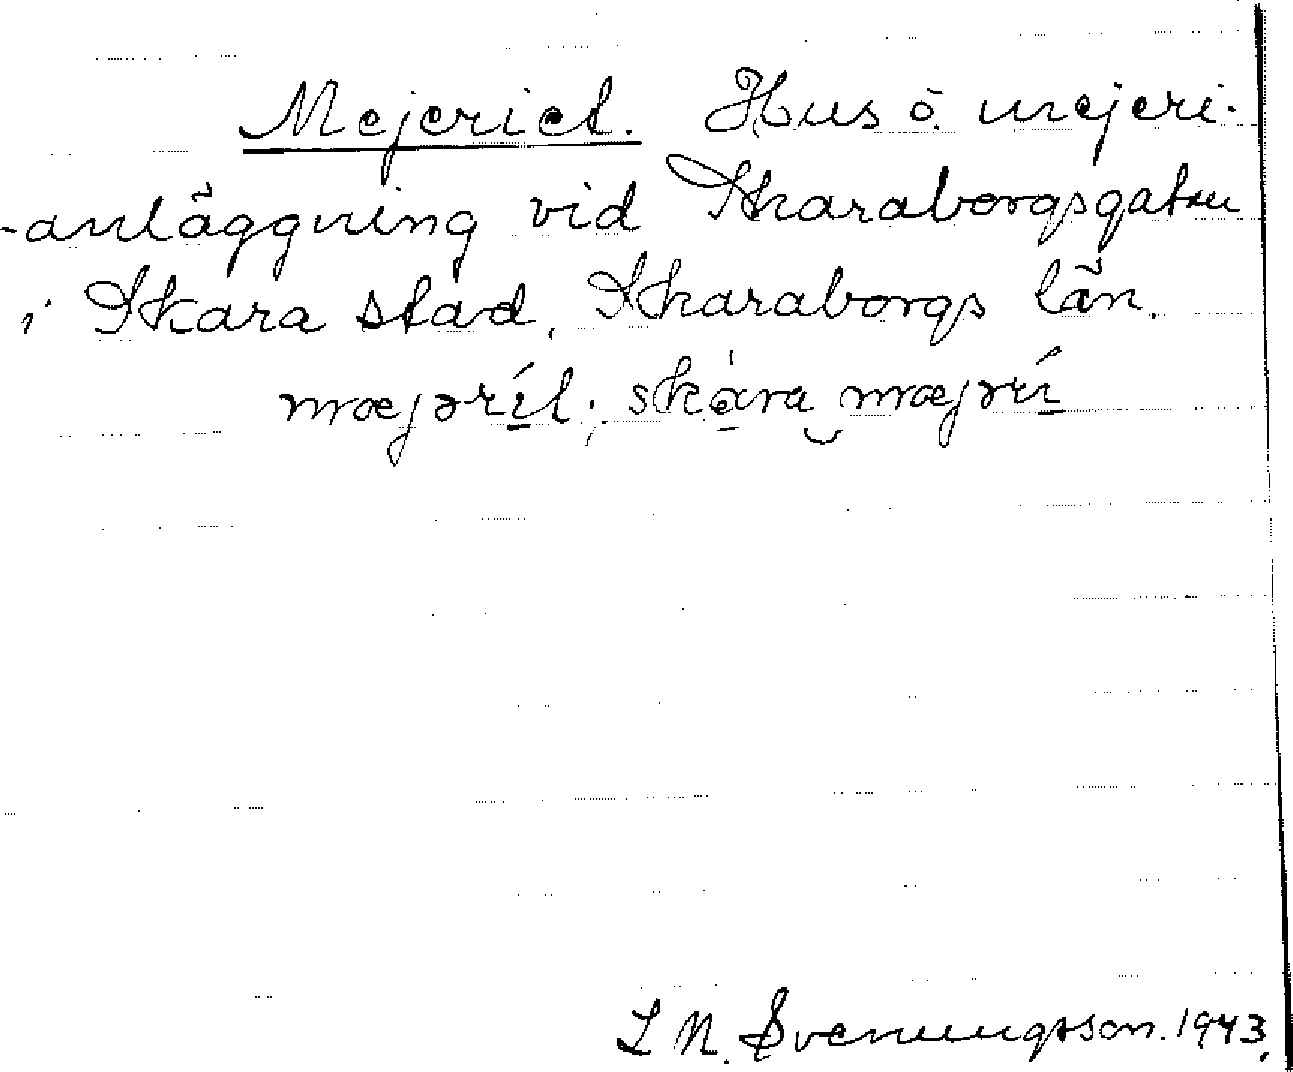 Mejeriet. Hus o. mejeri-
-anläggning vid Skaraborgsgatan
i Skara stad, Skaraborgs län.
mæjərít; skára mæjərí
L N. Svenungsson. 1943.